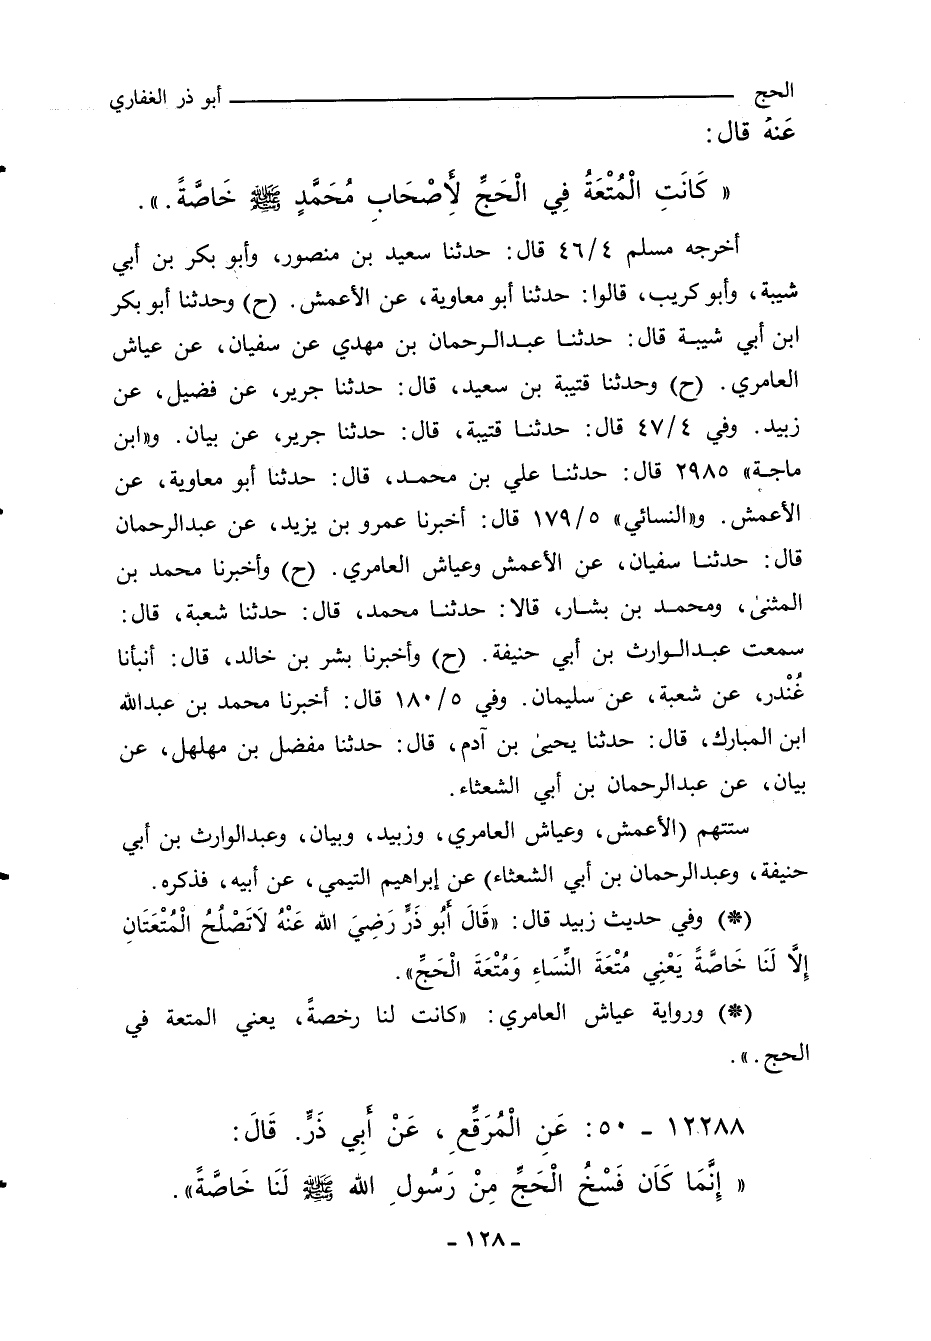 الحج ــــــــــــــــــــ أبو ذر الغفاري
عَنهُ قال:
« كَانَتِ الْمُتْعَةُ فِي الْحَجِّ لِأَصْحَابِ مُحَمَّدٍ ﷺ خَاصَّةً . ».
أخرجه مسلم ٤٦/٤ قال: حدثنا سعيد بن منصور، وأبو بكر بن أبي
شيبة، وأبو كريب، قالوا: حدثنا أبو معاوية، عن الأعمش. (ح) وحدثنا أبو بكر
ابن أبي شيبة قال: حدثنا عبدالرحمان بن مهدي عن سفيان، عن عياش
العامري. (ح) وحدثنا قتيبة بن سعيد، قال: حدثنا جرير، عن فضيل، عن
زبيد. وفي ٤٧/٤ قال: حدثنا قتيبة، قال: حدثنا جرير، عن بيان. و«ابن
ماجة» ٢٩٨٥ قال: حدثنا علي بن محمد، قال: حدثنا أبو معاوية، عن
الأعمش. و«النسائي» ١٧٩/٥ قال: أخبرنا عمرو بن يزيد، عن عبدالرحمان
قال: حدثنا سفيان، عن الأعمش وعياش العامري. (ح) وأخبرنا محمد بن
المثنىٰ، ومحمد بن بشار، قالا: حدثنا محمد، قال: حدثنا شعبة، قال:
سمعت عبدالوارث بن أبي حنيفة. (ح) وأخبرنا بشر بن خالد، قال: أنبأنا
غُنْدر، عن شعبة، عن سليمان. وفي ١٨٠/٥ قال: أخبرنا محمد بن عبدالله
ابن المبارك، قال: حدثنا يحيىٰ بن آدم، قال: حدثنا مفضل بن مهلهل، عن
بيان، عن عبدالرحمان بن أبي الشعثاء.
ستتهم (الأعمش، وعياش العامري، وزبيد، وبيان، وعبدالوارث بن أبي
حنيفة، وعبدالرحمان بن أبي الشعثاء) عن إبراهيم التيمي، عن أبيه، فذكره.
(*) وفي حديث زبيد قال: «قَالَ أَبُو ذَرٍّ رَضِيَ الله عَنْهُ لَاتَصْلُحُ الْمُتْعَتَانِ
إِلَّا لَنَا خَاصَّةً يَعْنِي مُتْعَةَ النِّسَاءِ وَمُتْعَةَ الْحَجِّ».
(*) ورواية عياش العامري: «كانت لنا رخصةً، يعني المتعة في
الحج. ».
١٢٢٨٨ - ٥٠: عَنِ الْمُرَقِّعِ، عَنْ أَبِي ذَرٍّ. قَالَ:
« إِنَّمَا كَانَ فَسْخُ الْحَجِّ مِنْ رَسُولِ الله ﷺ لَنَا خَاصَّةً».
- ١٢٨ -